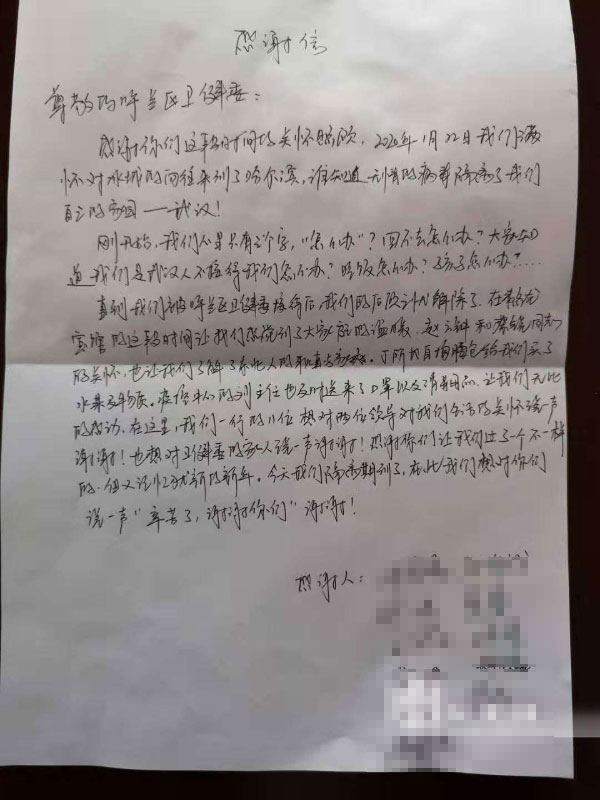 感谢信
尊敬的呼兰区卫健委：
感谢你们这段时间的关怀照顾，2020年1月22日我们满
怀对冰城的向往来到了哈尔滨，谁知道一别竟的病毒隔离了我们
自己的家园——武汉！
刚开始，我们心里只有三个字，"怎么办"？回不去怎么办？大家知
道我们是武汉人不接待我们怎么办？吃饭怎么办？孩子怎么办？……
直到我们被呼兰区卫健委接待后，我们的后顾之忧解除了。在
宾馆的这段时间让我们感觉到了大家庭的温暖，赵 和 同志
的关怀，也让我们了解了东北人的和直与 。 所 自掏腰包给我们买了
水果及物质。疾控中心的刘主任也及时送来了口罩以及消毒用品，让我们无比
的感动，在这里，我们一行的11位想对两位领导对我们生活的关怀说一声
谢谢！也想对卫健委的家人说一声谢谢！感谢你们让我们过了一个不一样
的，但又记忆犹新的新年。今天我们隔离期到了，在此我们想对你们
说一声"辛苦了，谢谢你们"谢谢！
感谢人：